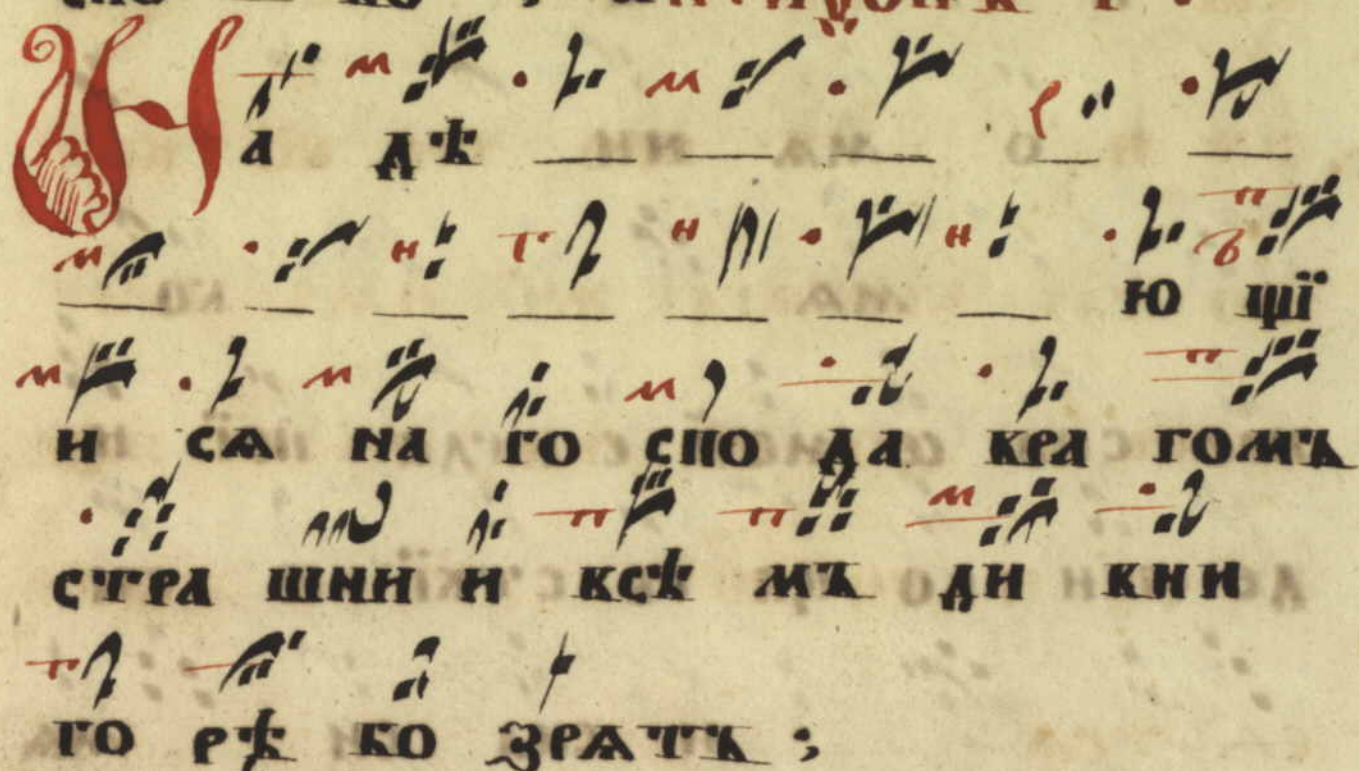 На дѣ
ю щї
и сѧ на го спо да вра гомъ
стра шни и всѣ мъ ди вни
го рѣ во зрѧтъ ;